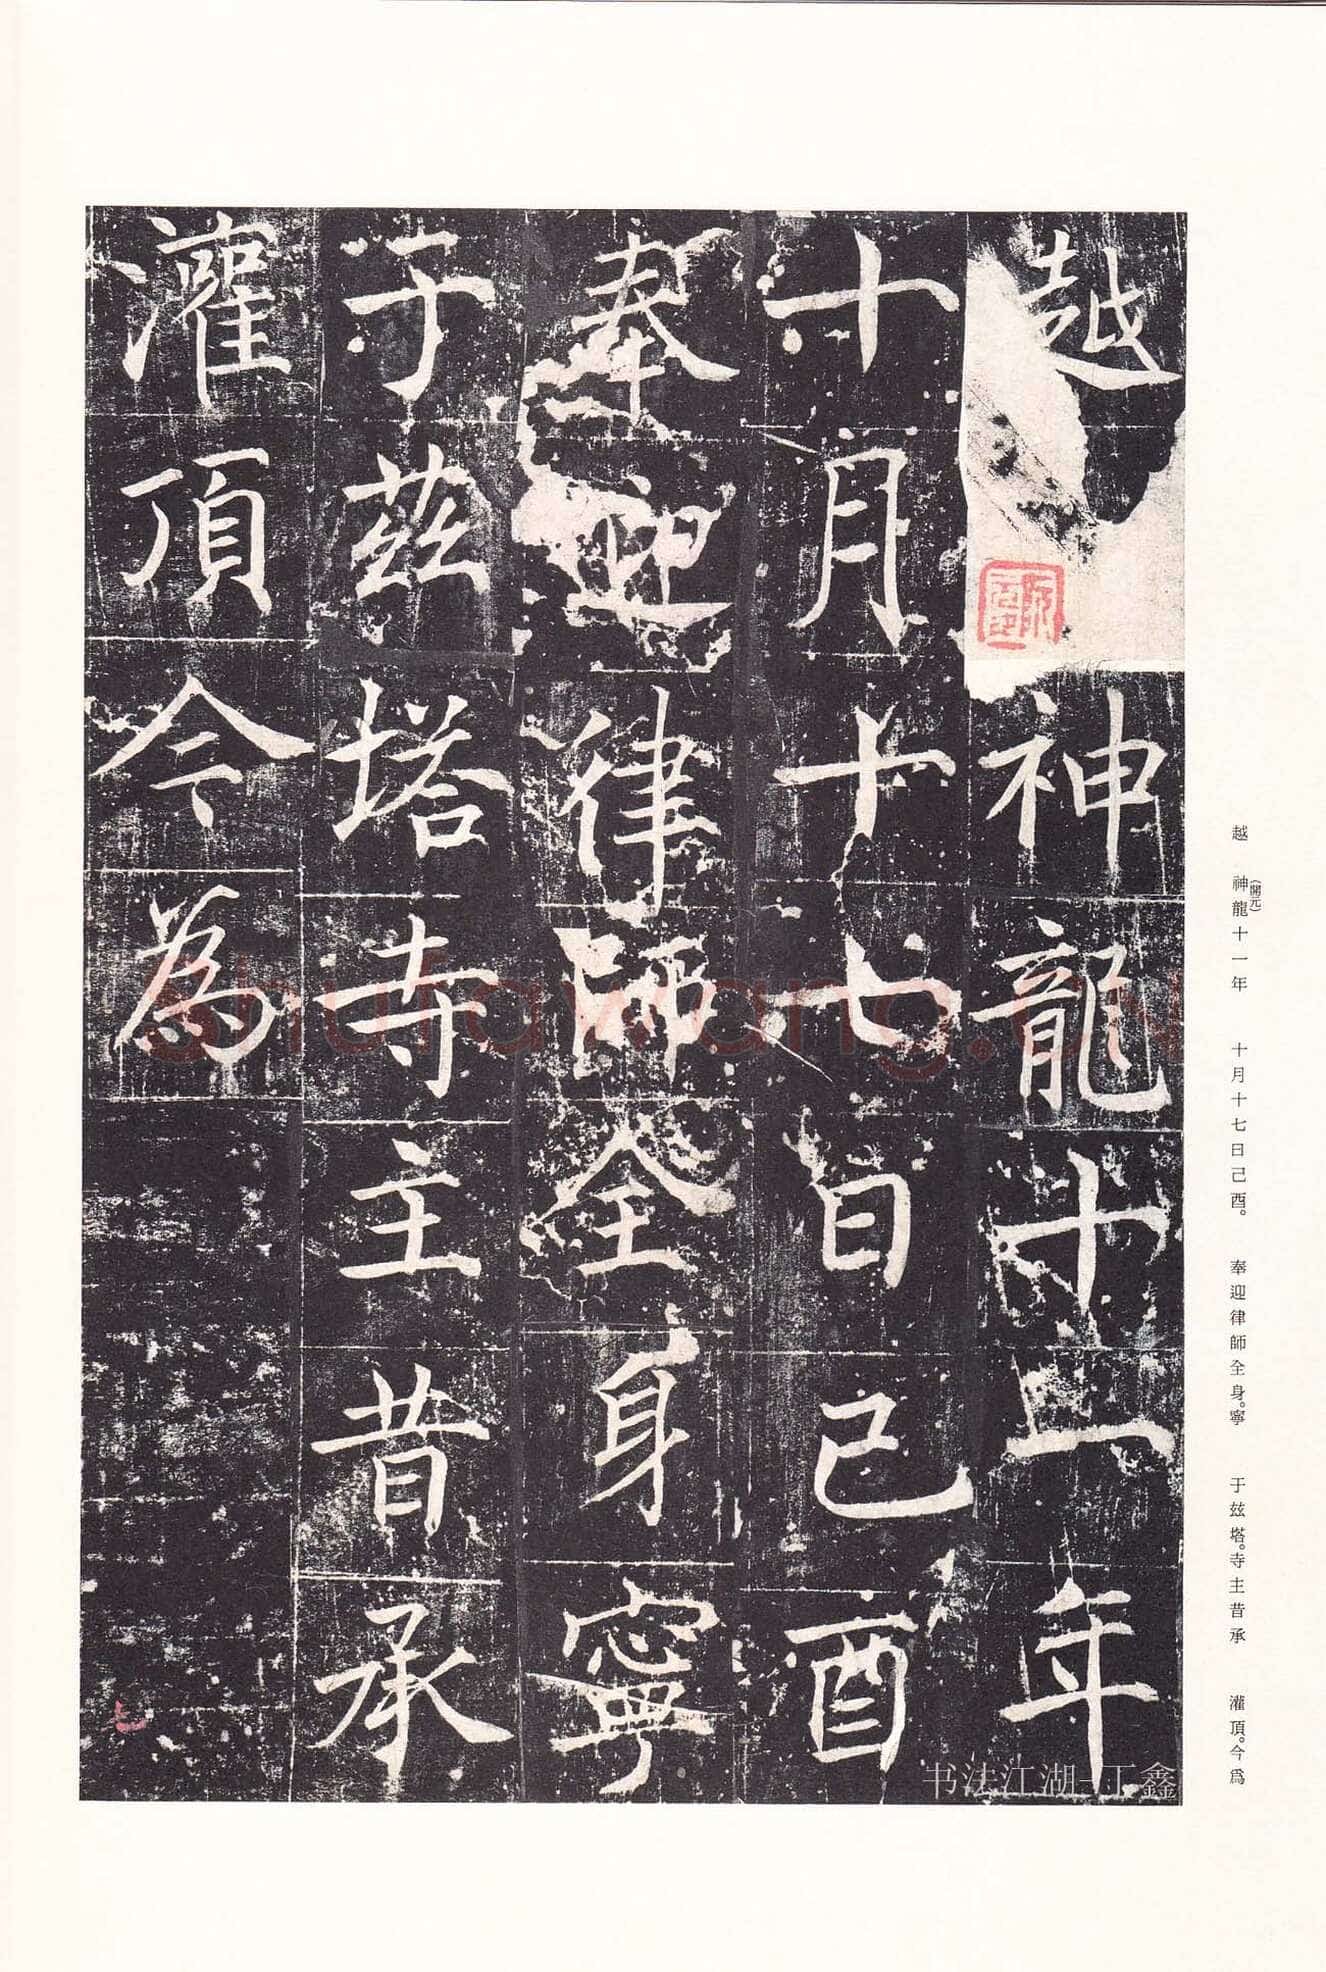 越神龍十一年
十月十七日己酉
奉迎律師全身寧
于兹塔寺主昔承
灌頂今為
越 神龍十一年 十月十七日己酉。 奉迎律師全身。寧 于兹塔。寺主昔承 灌頂。今爲
(開元)
shufawang.cn
书法江湖-丁鑫